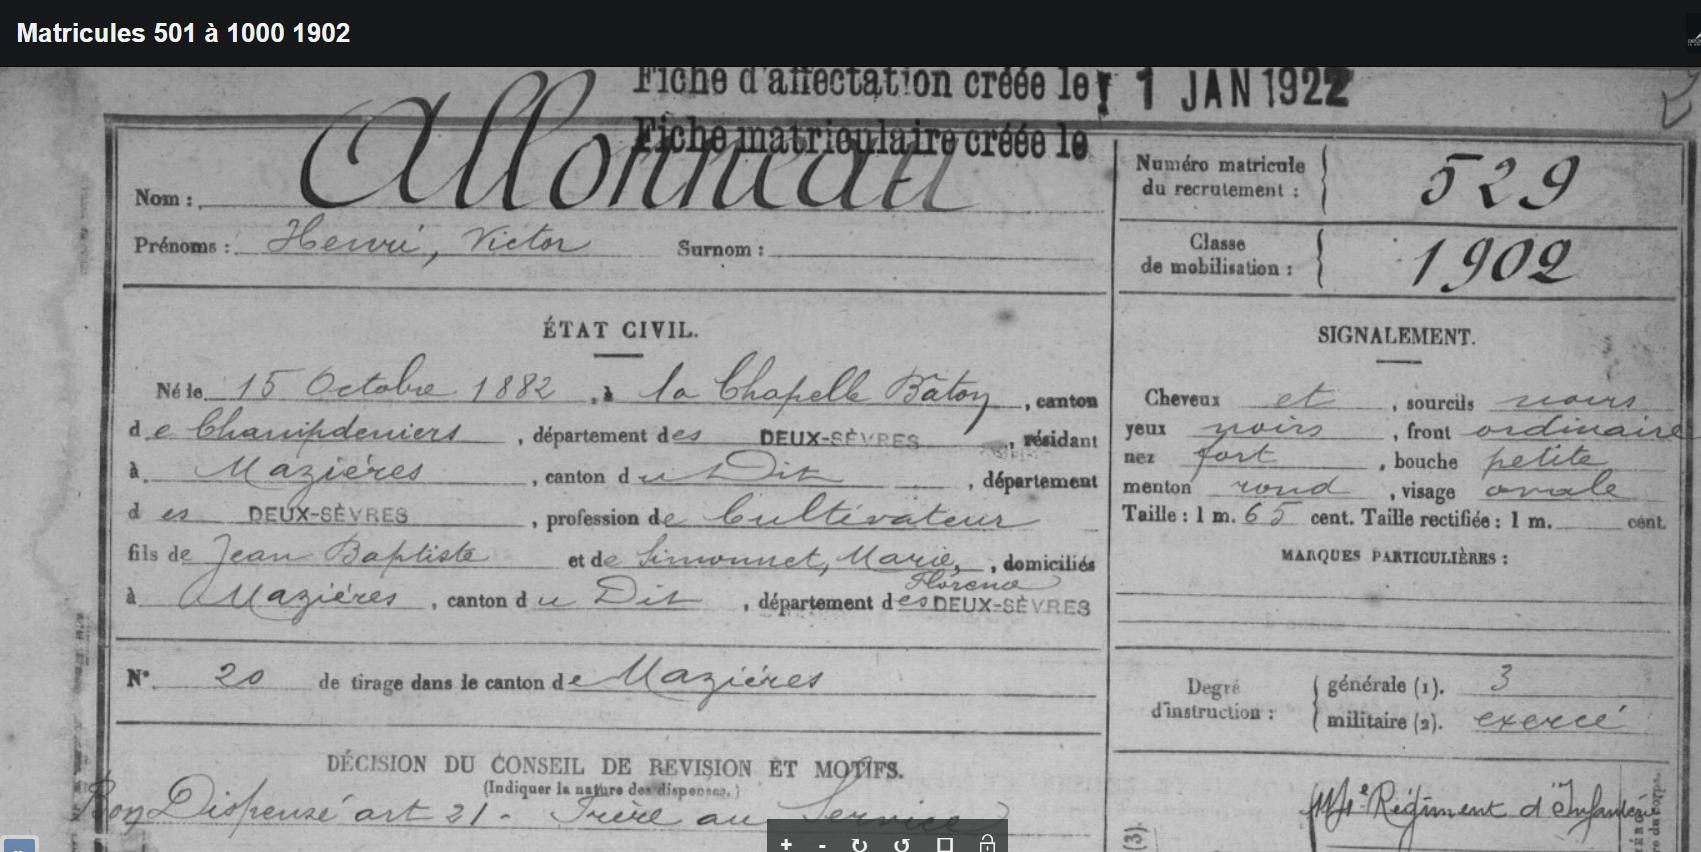 Matricules 501 à 1000 1902
Fiche d'affectation créée le 1 JAN 1922
Fiche matriculaire créée le
Nom : Allonneau
Prénoms : Henri, Victor Surnom :
Numéro matricule du recrutement : 529
Classe de mobilisation : 1902
ÉTAT CIVIL.
Né le 15 Octobre 1882, à la Chapelle Bâton, canton
de Champdeniers, département des DEUX-SÈVRES, résidant
à Mazières, canton du Dit, département
des DEUX-SÈVRES, profession de Cultivateur
fils de Jean Baptiste et de Simonnet, Marie, Florence, domiciliés
à Mazières, canton du Dit, département des DEUX-SÈVRES
N° 20 de tirage dans le canton de Mazières
DÉCISION DU CONSEIL DE REVISION ET MOTIFS.
(Indiquer la nature des dispenses.)
Bon Dispensé art 21 - Frère au Service
SIGNALEMENT.
Cheveux et, sourcils noirs
yeux noirs, front ordinaire
nez fort, bouche petite
menton rond, visage ovale
Taille : 1 m. 65 cent. Taille rectifiée : 1 m. cent.
MARQUES PARTICULIÈRES :
Degré d'instruction :
générale (1). 3
militaire (2). exercé
Régiment d'Infanterie
(3).